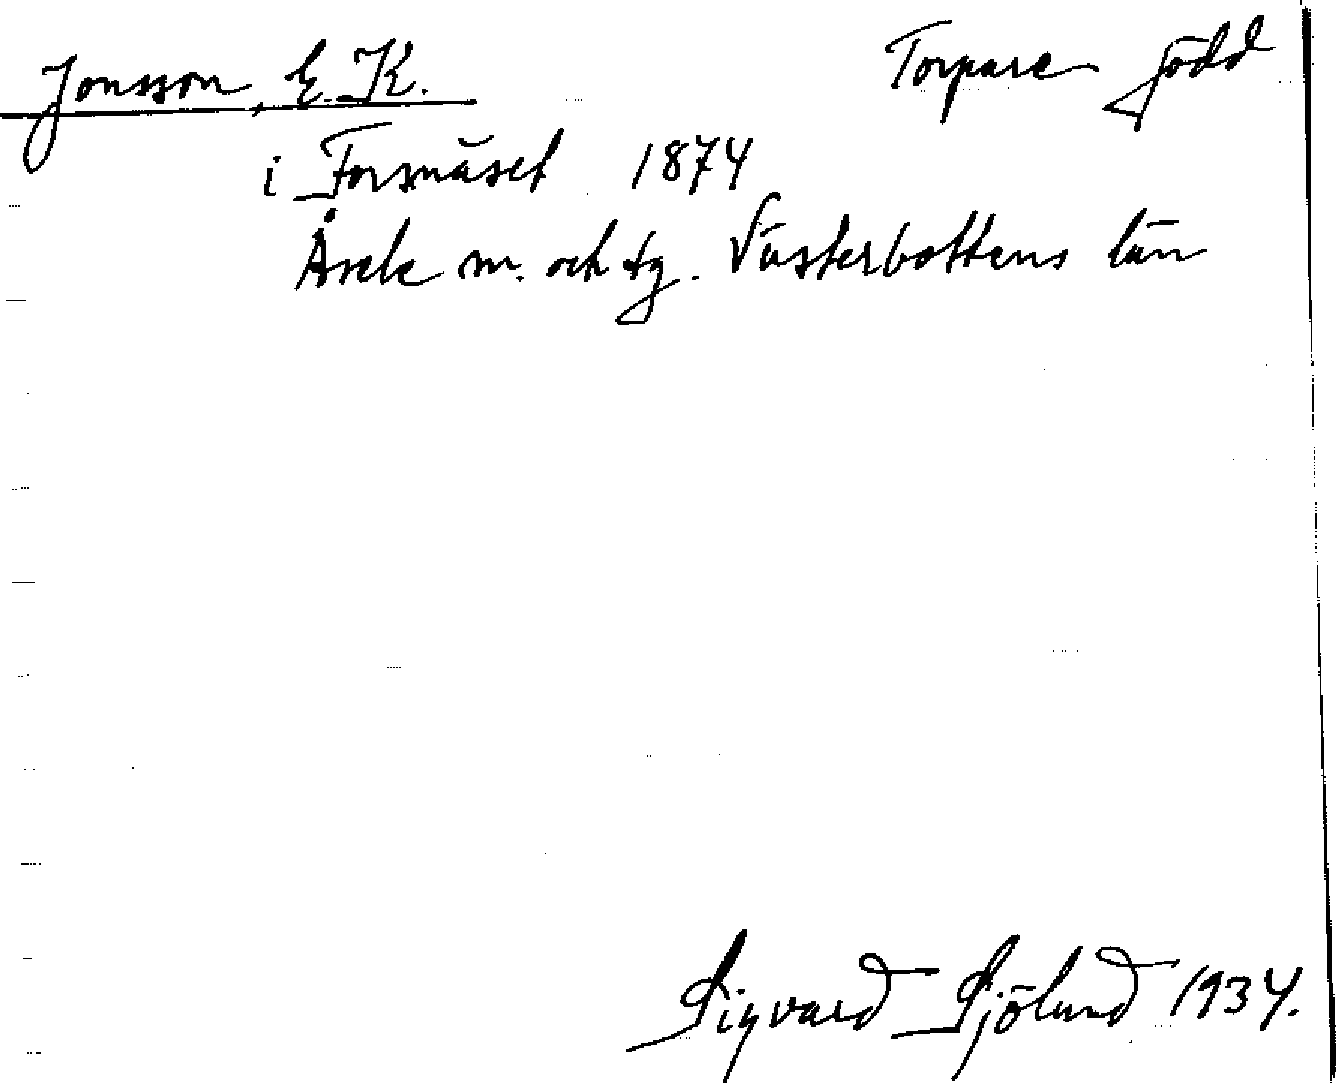 Jonsson, E. K. Torpare född
i Forsnäset 1874
Åsele sn. och tg. Västerbottens län
Sigvard Sjölund 1934.